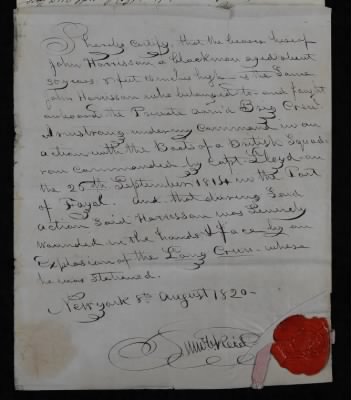 I hereby certify, that the bearer hereof
John Harrisson a blackman aged about
30 years 5 feet inches high – is the Same
John Harrisson who belonged to - and fought
on board the Private arm'd Brig Genl
Armstrong under my Command in an
action with the Boats of a British Squad-
ron Commanded by Capt. Lloyd - on
the 26th September 1814 in the Port
of Fayal. and that during Said
action Said Harrisson was Severely
wounded in the hands & face by an
Explosion of the Long Gun - where
he was stationed.
New york 8th August 1820 -
Reid